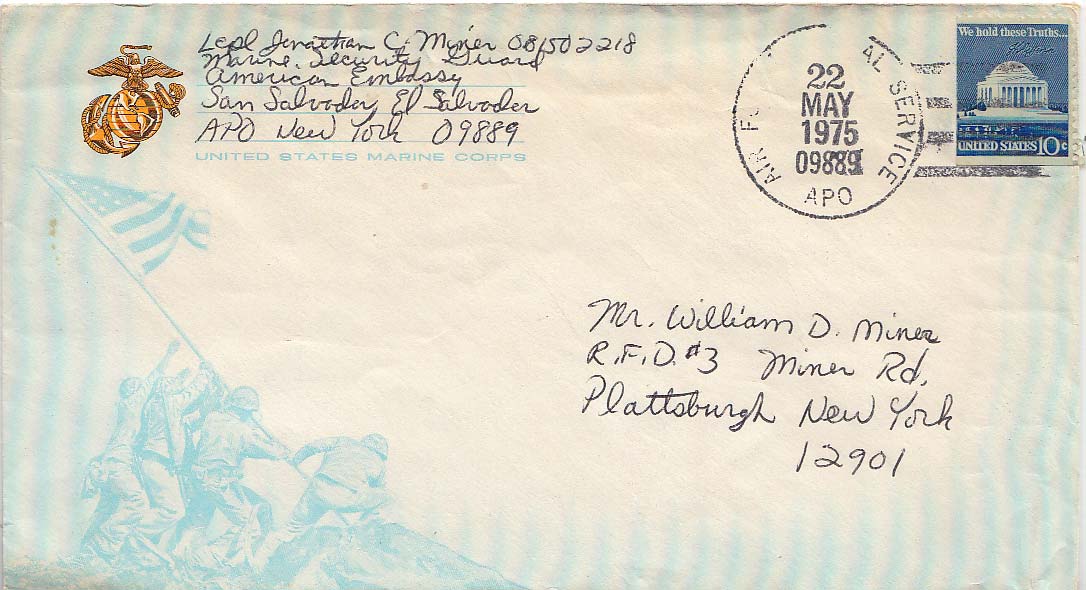 Lcpl Jonathan C. Miner 081502218
Marine Security Guard
American Embassy
San Salvador, El Salvador
APO New York 09889
UNITED STATES MARINE CORPS
AIR F AL SERVICE
22
MAY
1975
09889
APO
We hold these Truths...
UNITED STATES 10c
Mr. William D. Miner
R.F.D. #3 Miner Rd.
Plattsburgh New York
12901